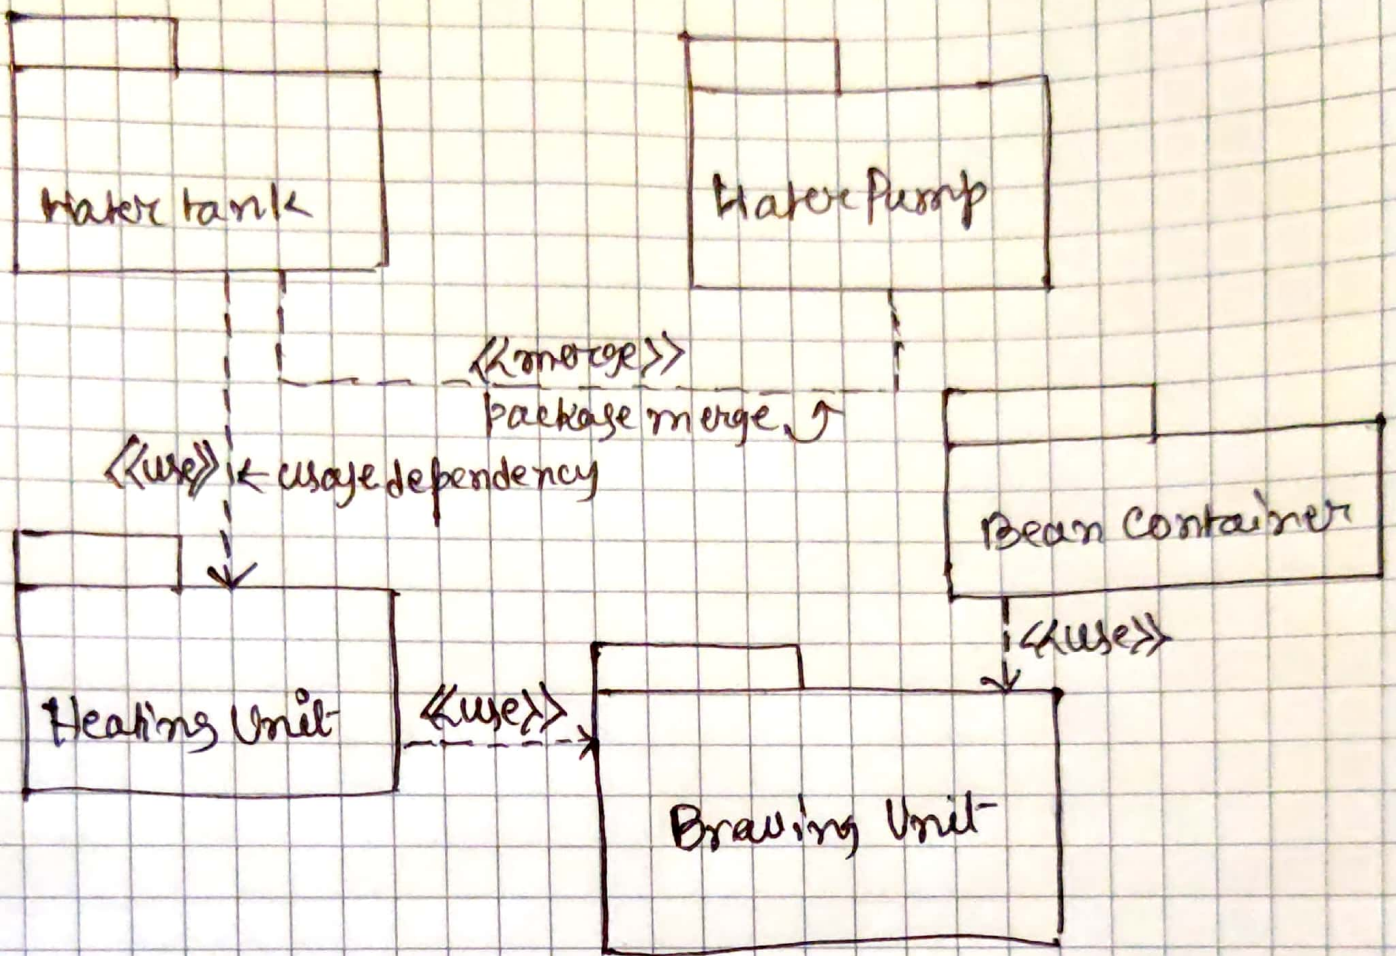 Water tank
Water Pump
<<merge>>
package merge
<<use>>
usage dependency
Bean Container
<<use>>
Heating Unit
<<use>>
Brewing Unit